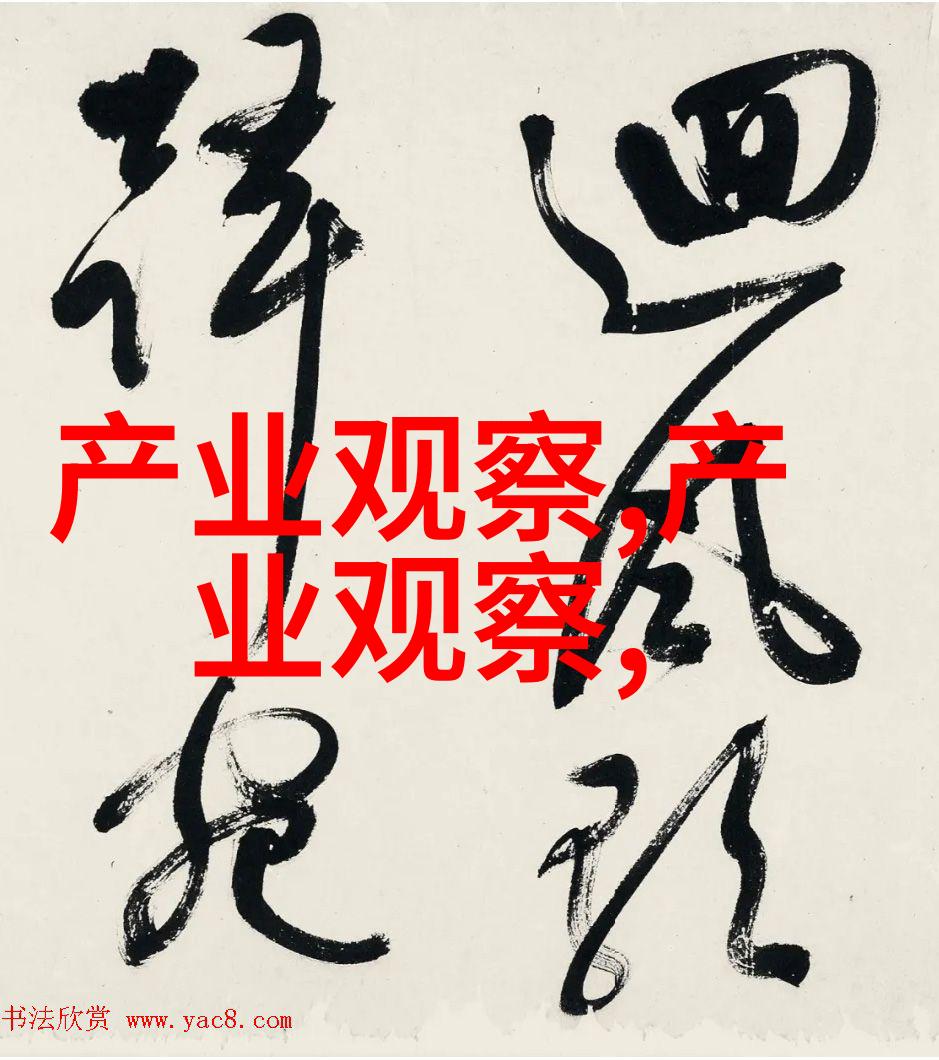 迴風
产业观察,产
业观察,
书法欣赏 www.yac8.com